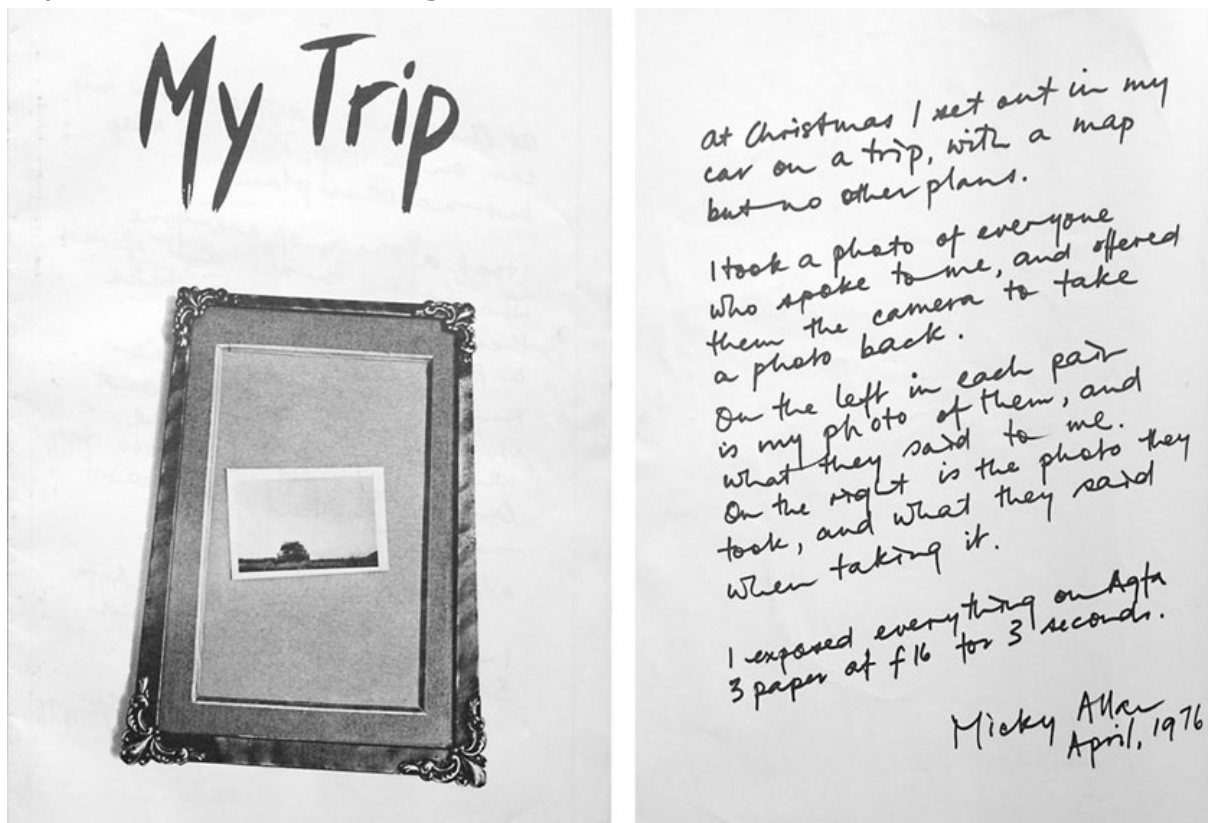 My Trip
at Christmas I set out in my
car on a trip, with a map
but no other plans.
I took a photo of everyone
who spoke to me, and offered
them the camera to take
a photo back.
On the left in each pair
is my photo of them, and
what they said to me.
On the right is the photo they
took, and what they said
when taking it.
I exposed everything on Agfa
3 paper at f16 for 3 seconds.
Micky Allan
April, 1976